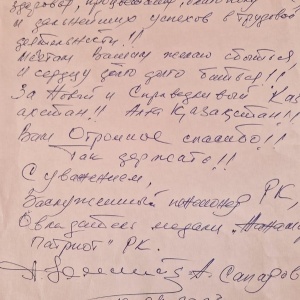 здоровья,
и дальнейших успехов в трудовой
деятельности!!
Мечтам Вашим желаю сбыться,
И сердцу долго долго биться!!!
За Новый и Справедливый Каз
ахстан!! Алға Қазақстан!!!
Вам Огромное спасибо!!!
Так держать!!
С уважением,
Заслуженный пенсионер РК,
Обладатель медали
Патриот" РК.
А. Сапаров